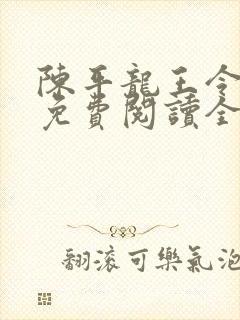 陳平龍王令
免費閱讀全
翻滚可樂氣泡